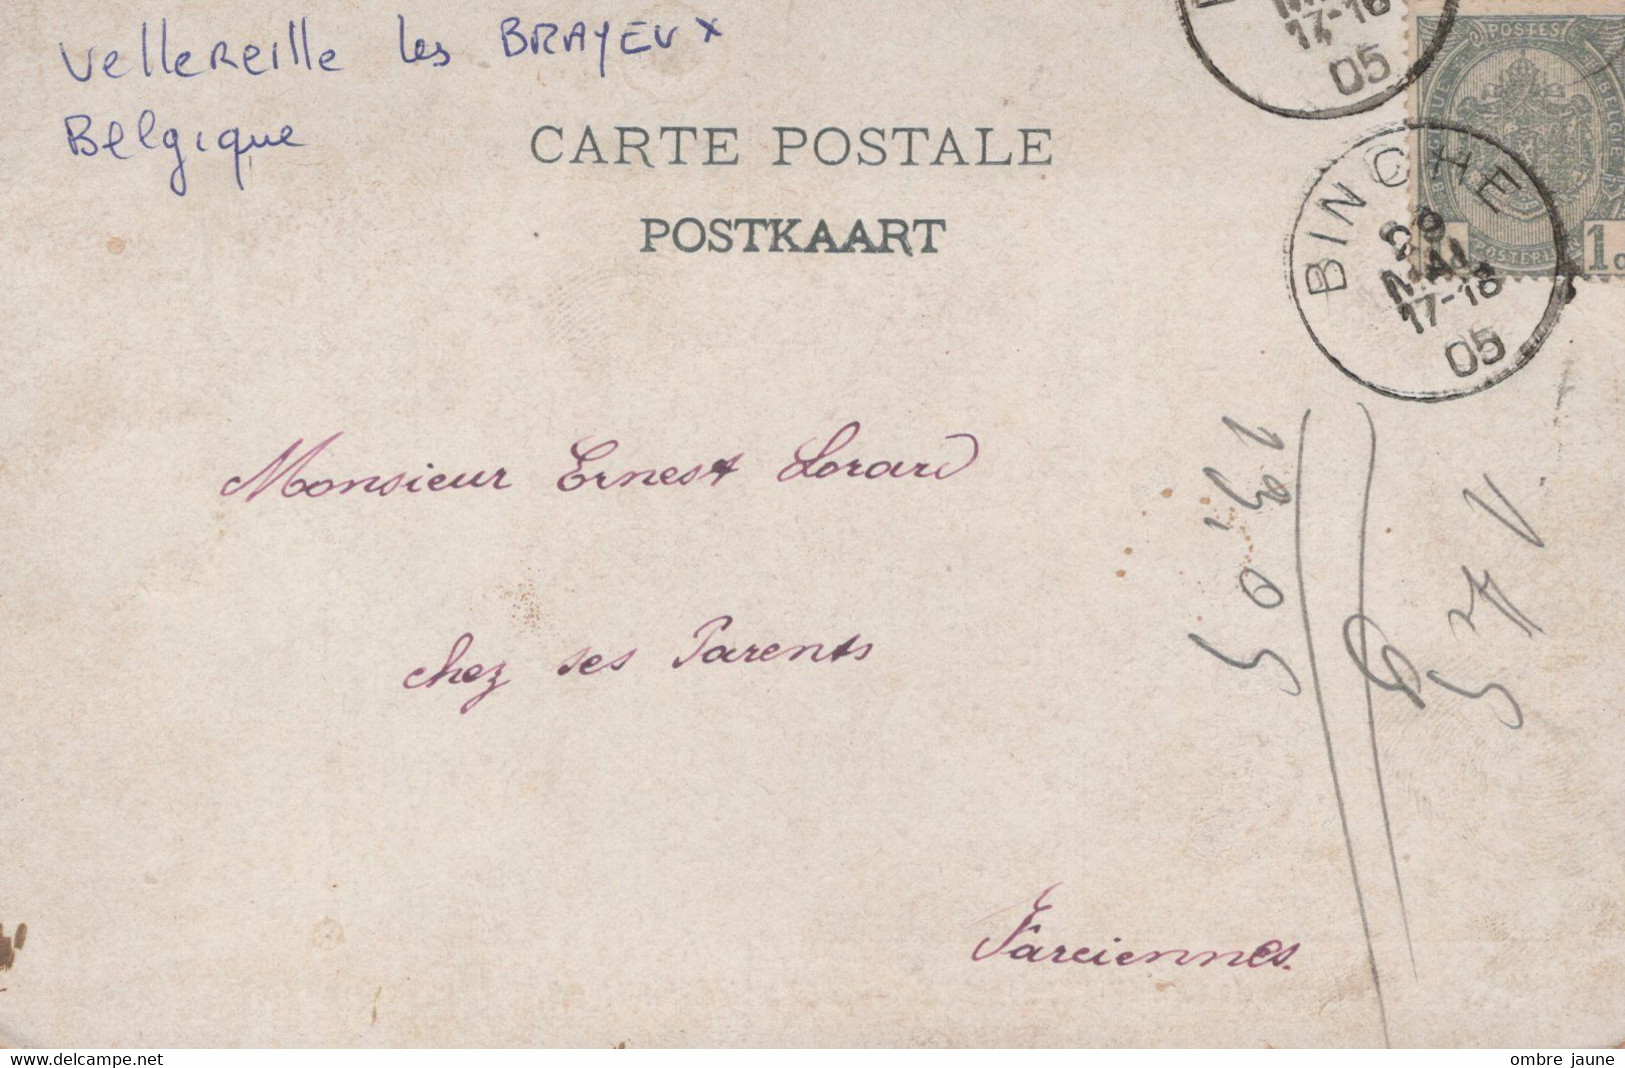 Vellereille les BRAYEUX
Belgique
CARTE POSTALE
POSTKAART
17-18
05
POSTES
BELGIQUE
POSTERIJEN
1c
BINCHE
MAI
17-18
05
Monsieur Ernest Lorard
chez ses Parents
Farciennes.
delcampe.net
ombre jaune